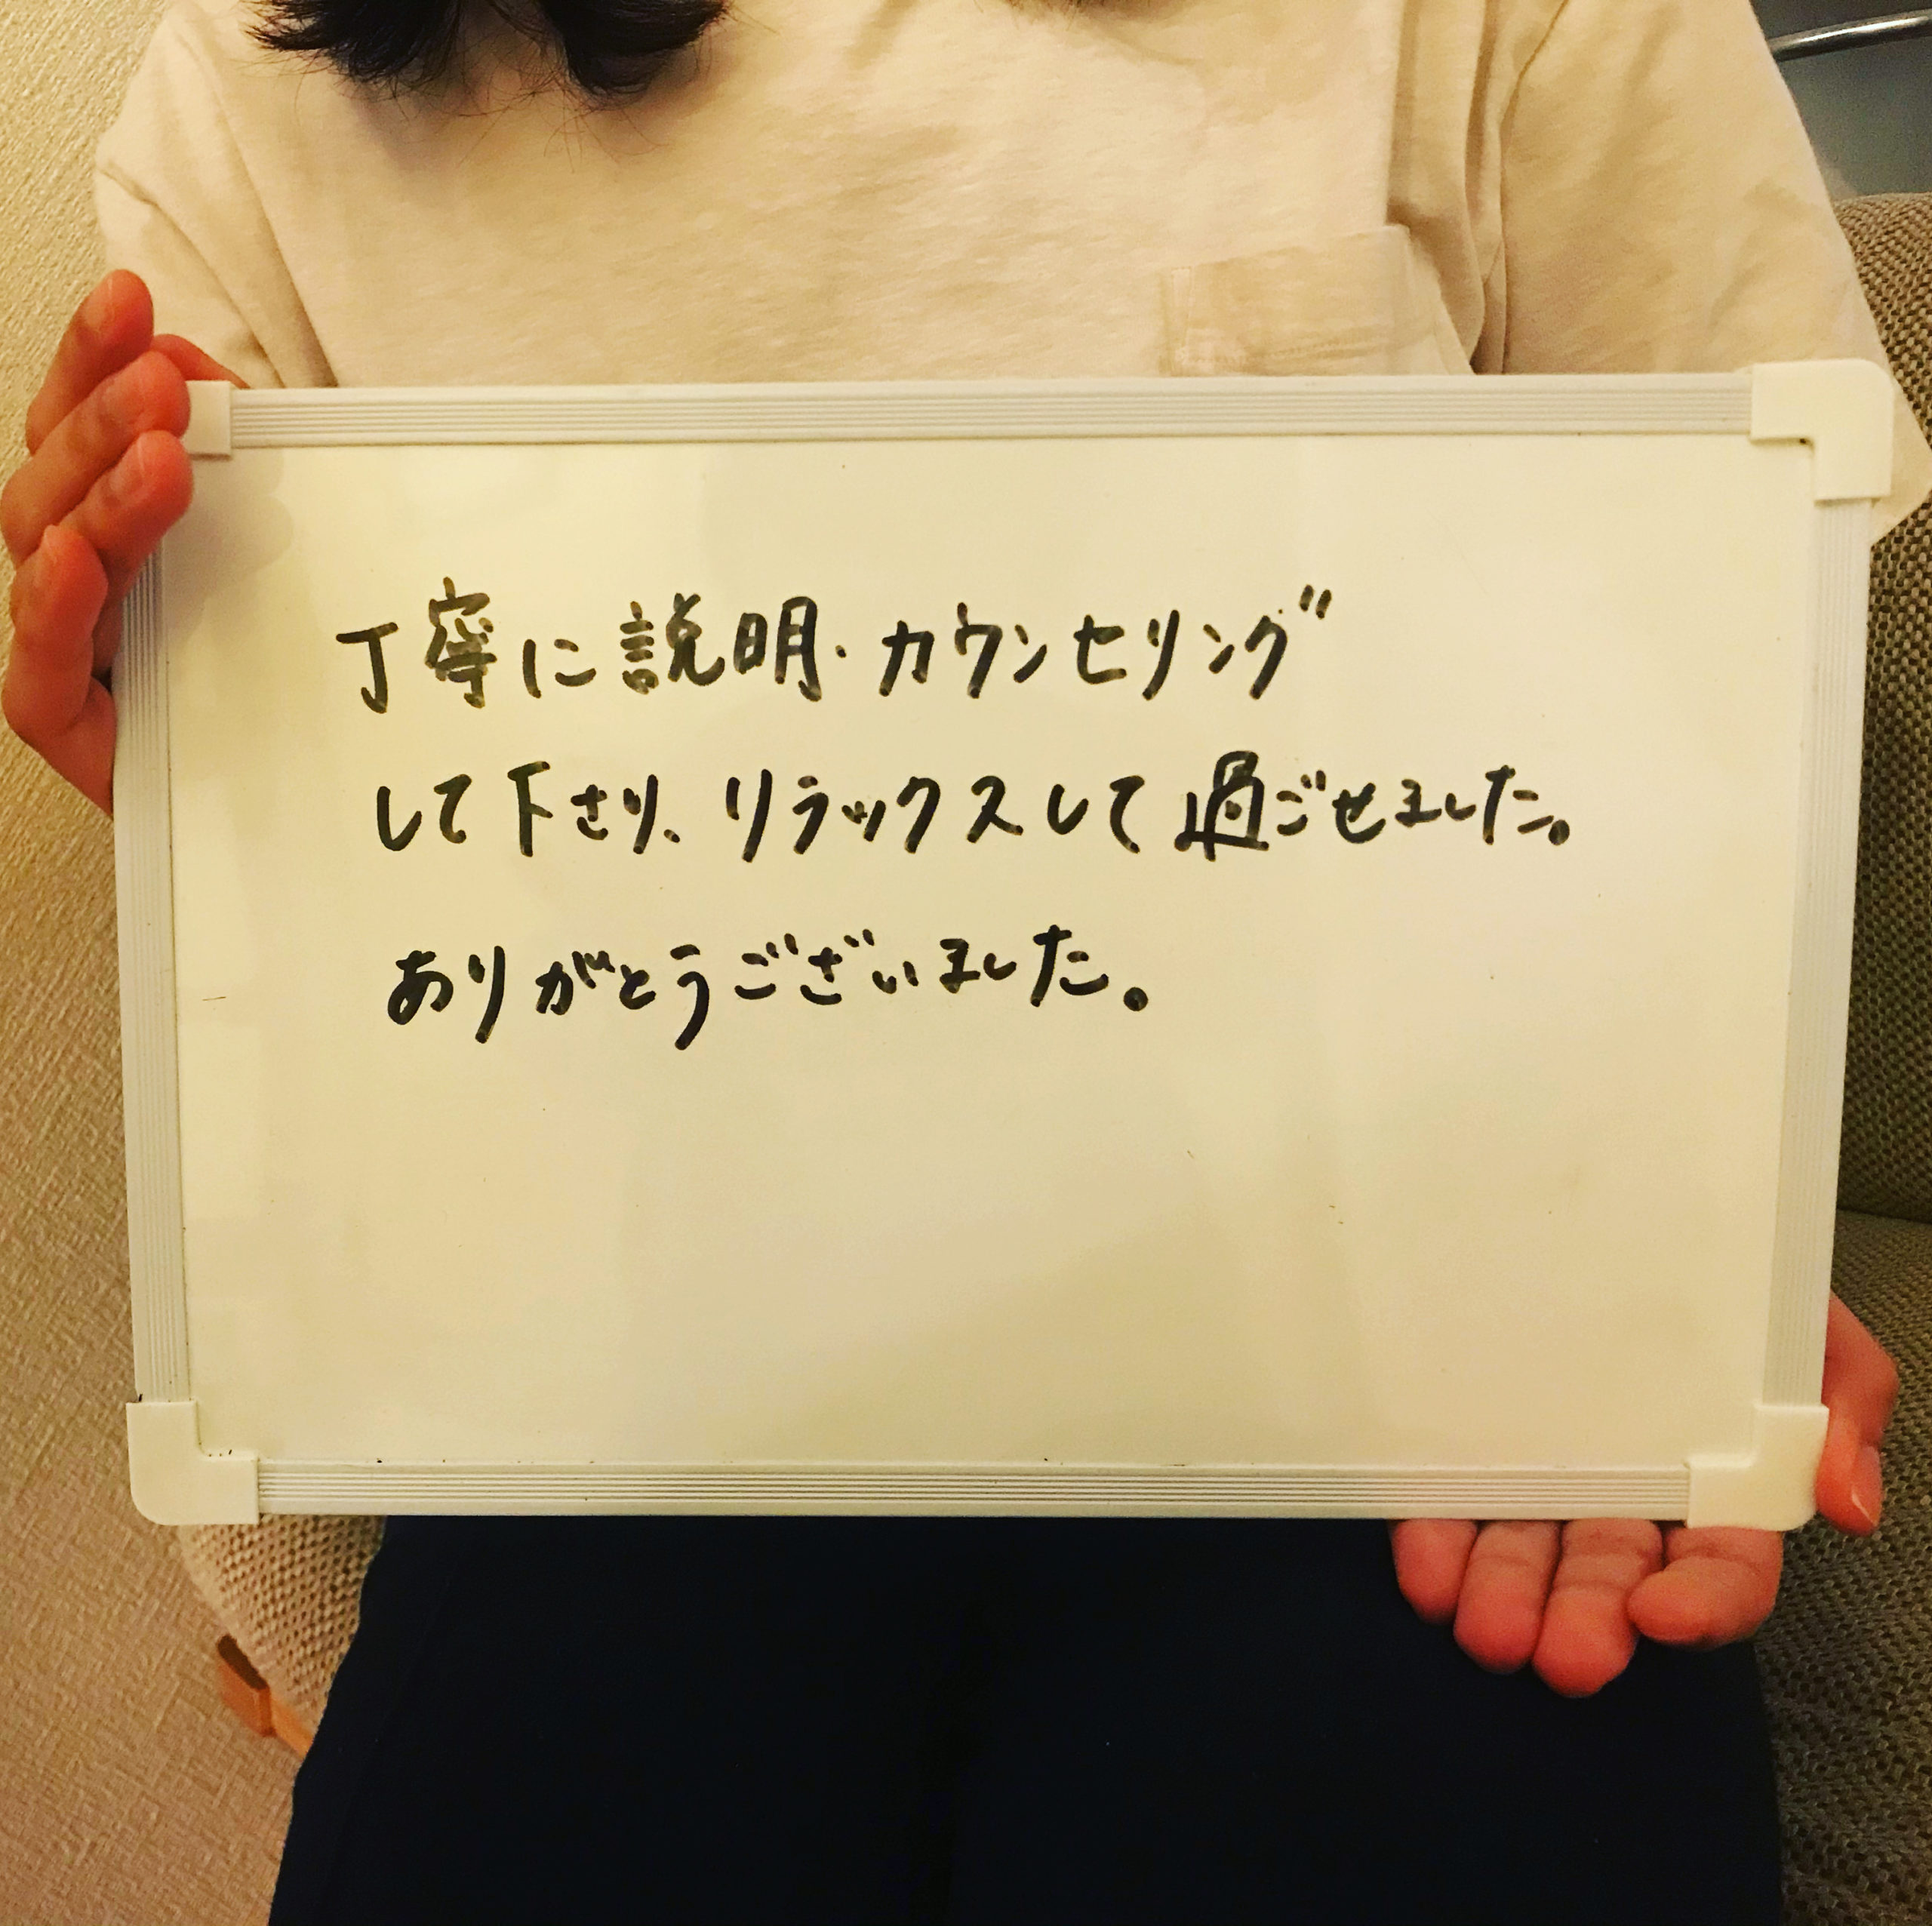 丁寧に説明・カウンセリング
して下さり、リラックスして過ごせました。
ありがとうございました。